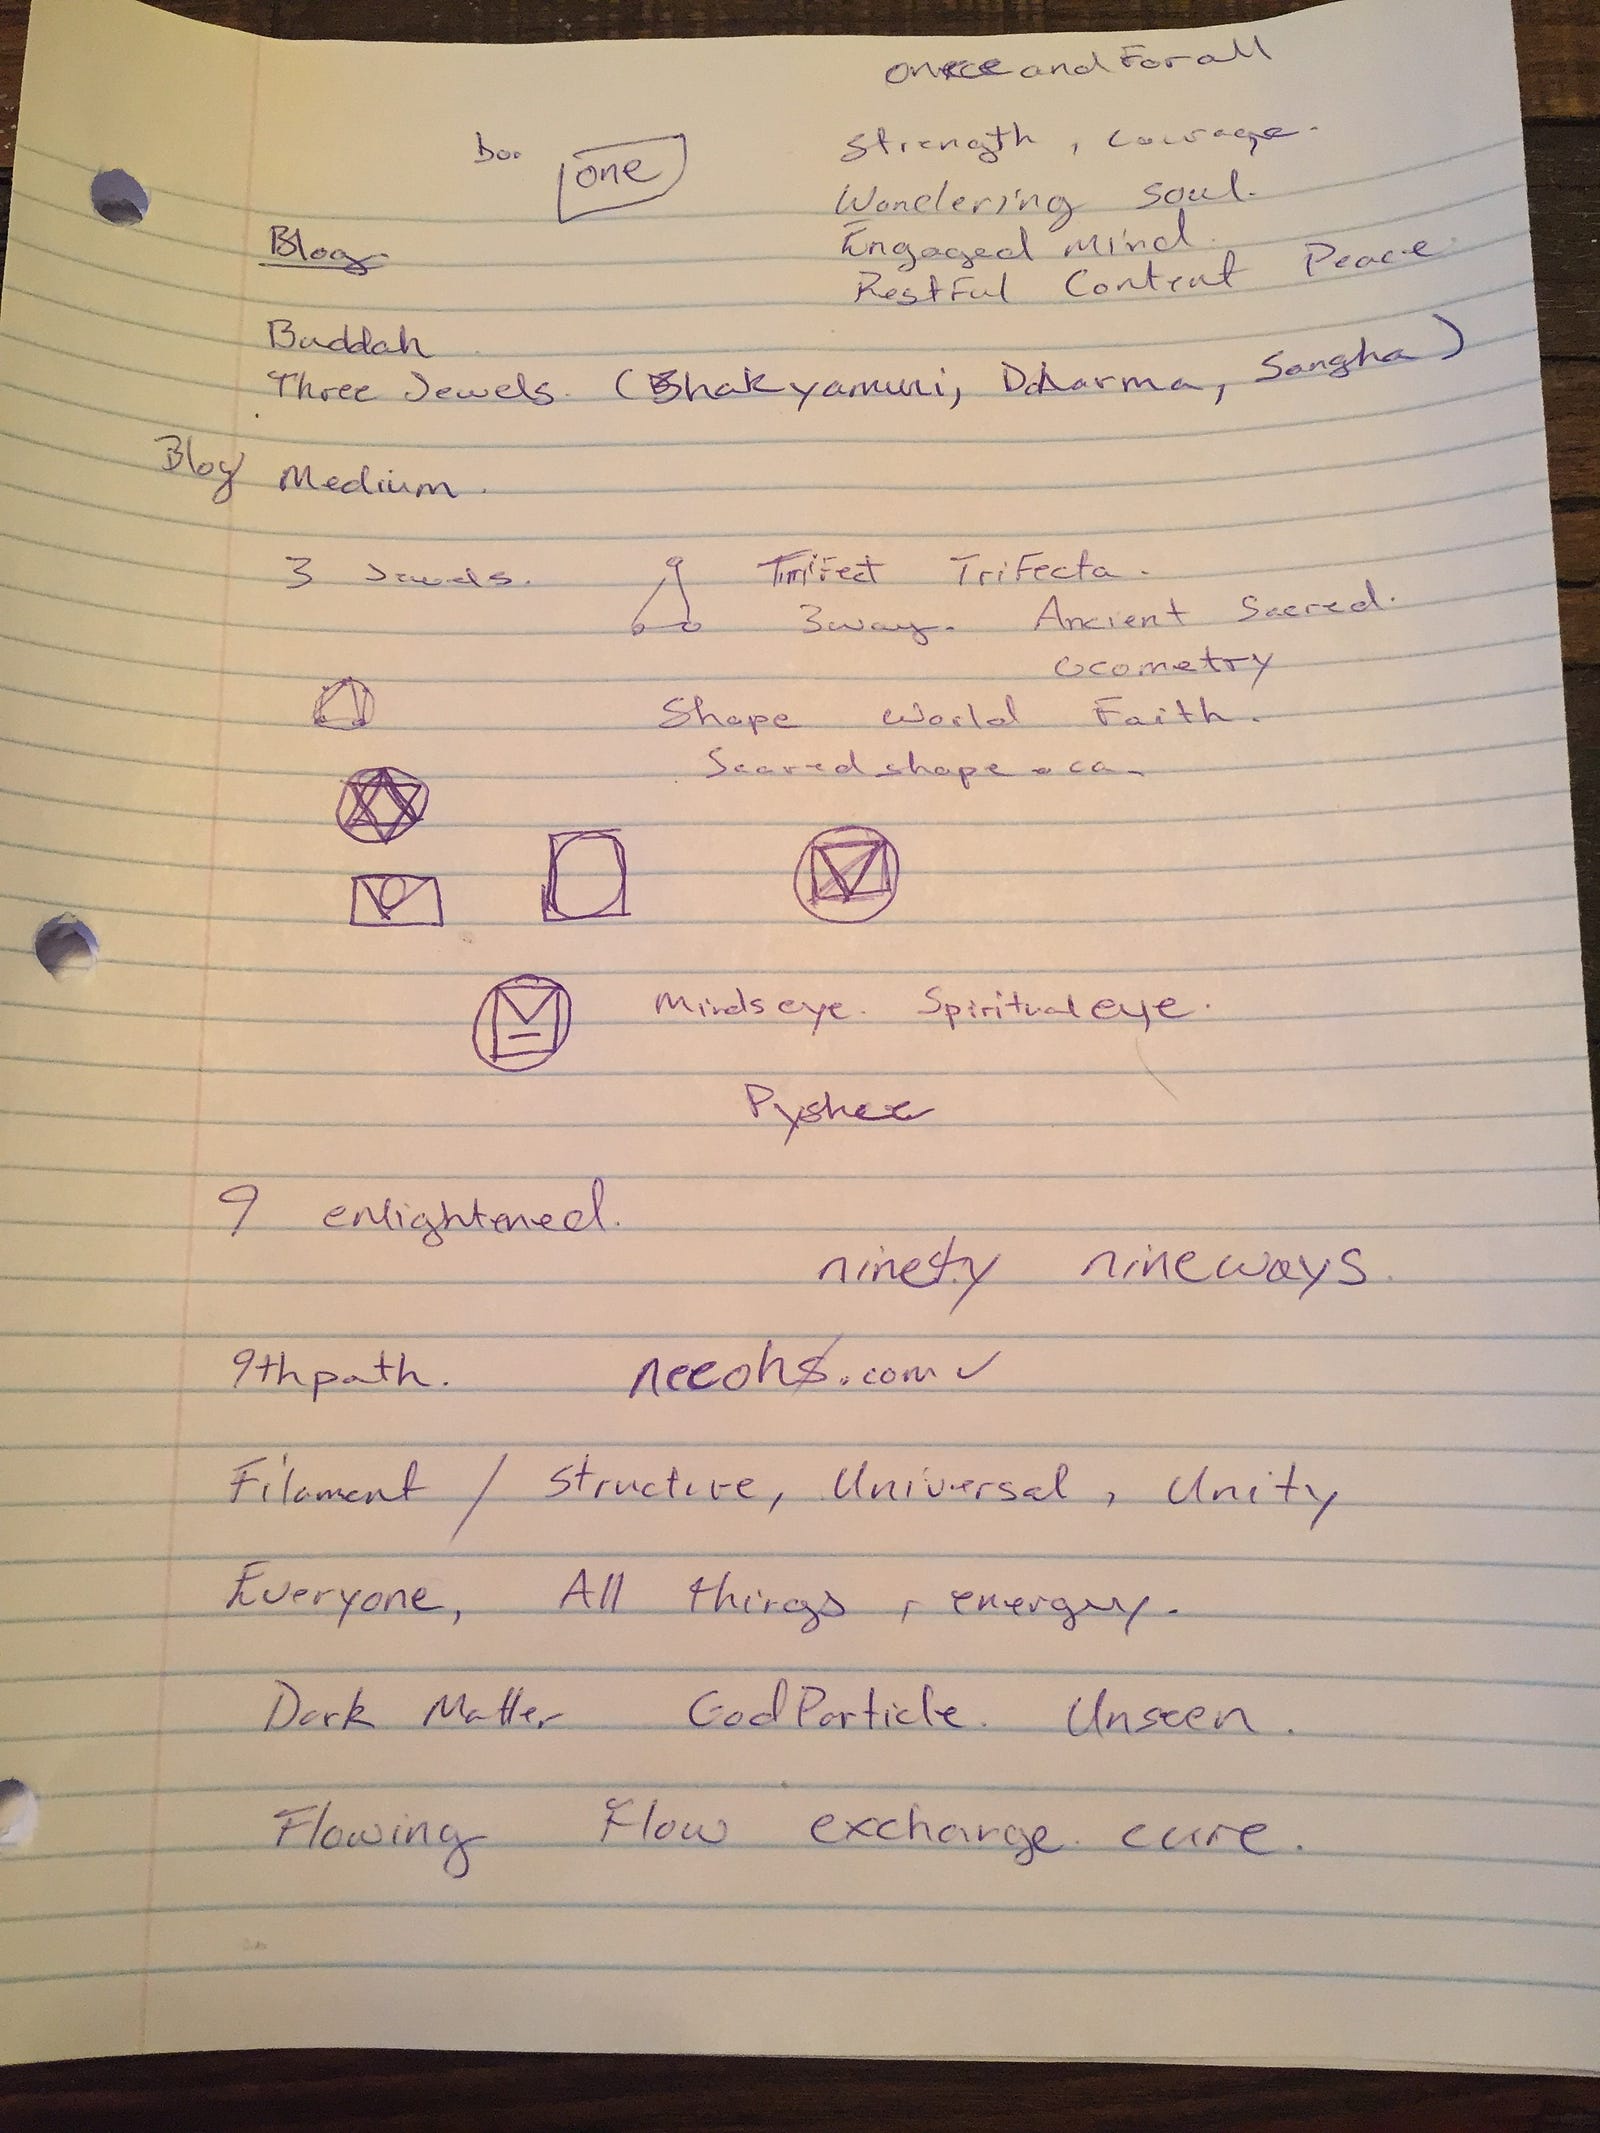 onece and For all
one
Strength, Courage.
Wondering Soul.
Blog
Engaged Mind.
Restful Content Peace
Buddah
Three Jewels. (Shakyamuni, Dharma, Sangha)
Blog Medium.
3 Jewels. Trifect Trifecta.
3way. Ancient Sacred.
Geometry
Shape World Faith.
Sacredshape.ca.
Mindseye. Spiritualeye.
9 enlightened.
ninety nineways.
9thpath. neeohs.com ✓
Filament / Structure, Universal, Unity
Everyone, All things, energy.
Dark Matter GodParticle. Unseen.
Flowing Flow exchange. cure.